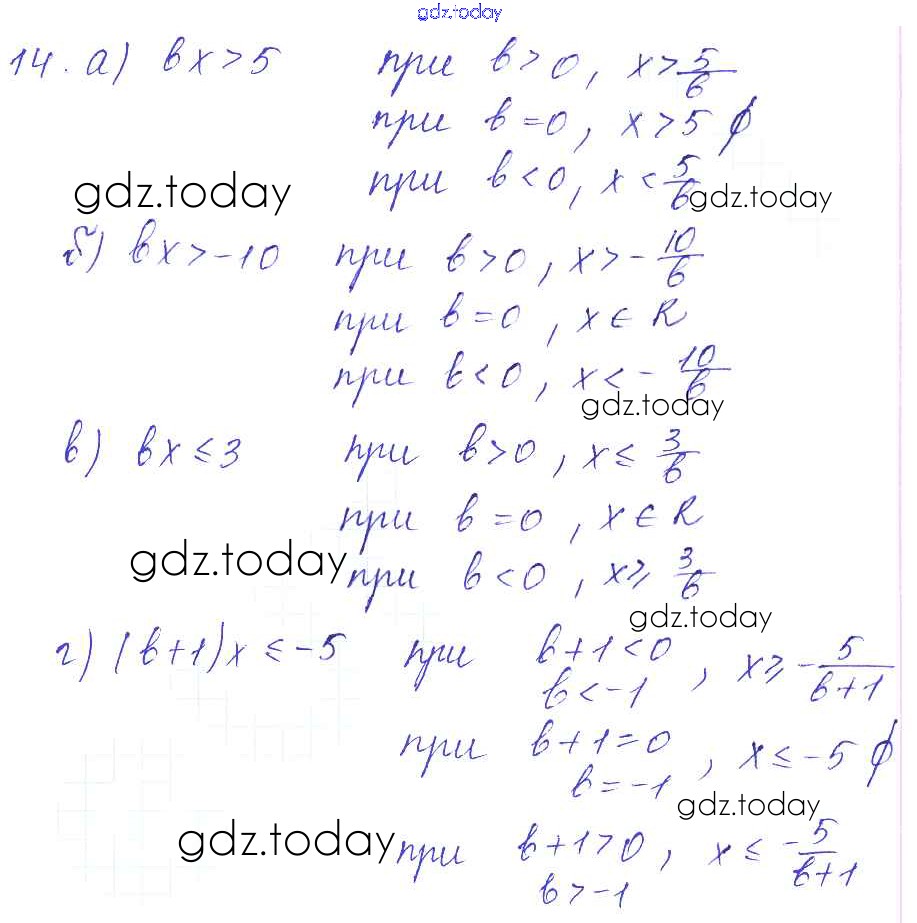 gdz.today
14. а) bx > 5 при b > 0, x > 5/b
при b = 0, x > 5 ∅
gdz.today при b < 0, x < 5/b gdz.today
б) bx > -10 при b > 0, x > - 10/b
при b = 0, x ∈ R
при b < 0, x < - 10/b
gdz.today
в) bx ≤ 3 при b > 0, x ≤ 3/b
при b = 0, x ∈ R
gdz.today при b < 0, x ≥ 3/b
gdz.today
г) (b+1)x ≤ -5 при b+1 < 0, x ≥ - 5/(b+1)
b < -1
при b+1 = 0, x ≤ -5 ∅
b = -1
gdz.today
gdz.today при b+1 > 0, x ≤ - 5/(b+1)
b > -1